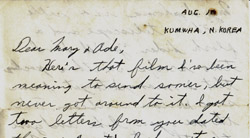 AUG. 10
KUMWHA, N. KOREA
Dear Mary & Ade,
Here's that film I've been
meaning to send sooner, but
never got around to it. I got
two letters from you dated
the